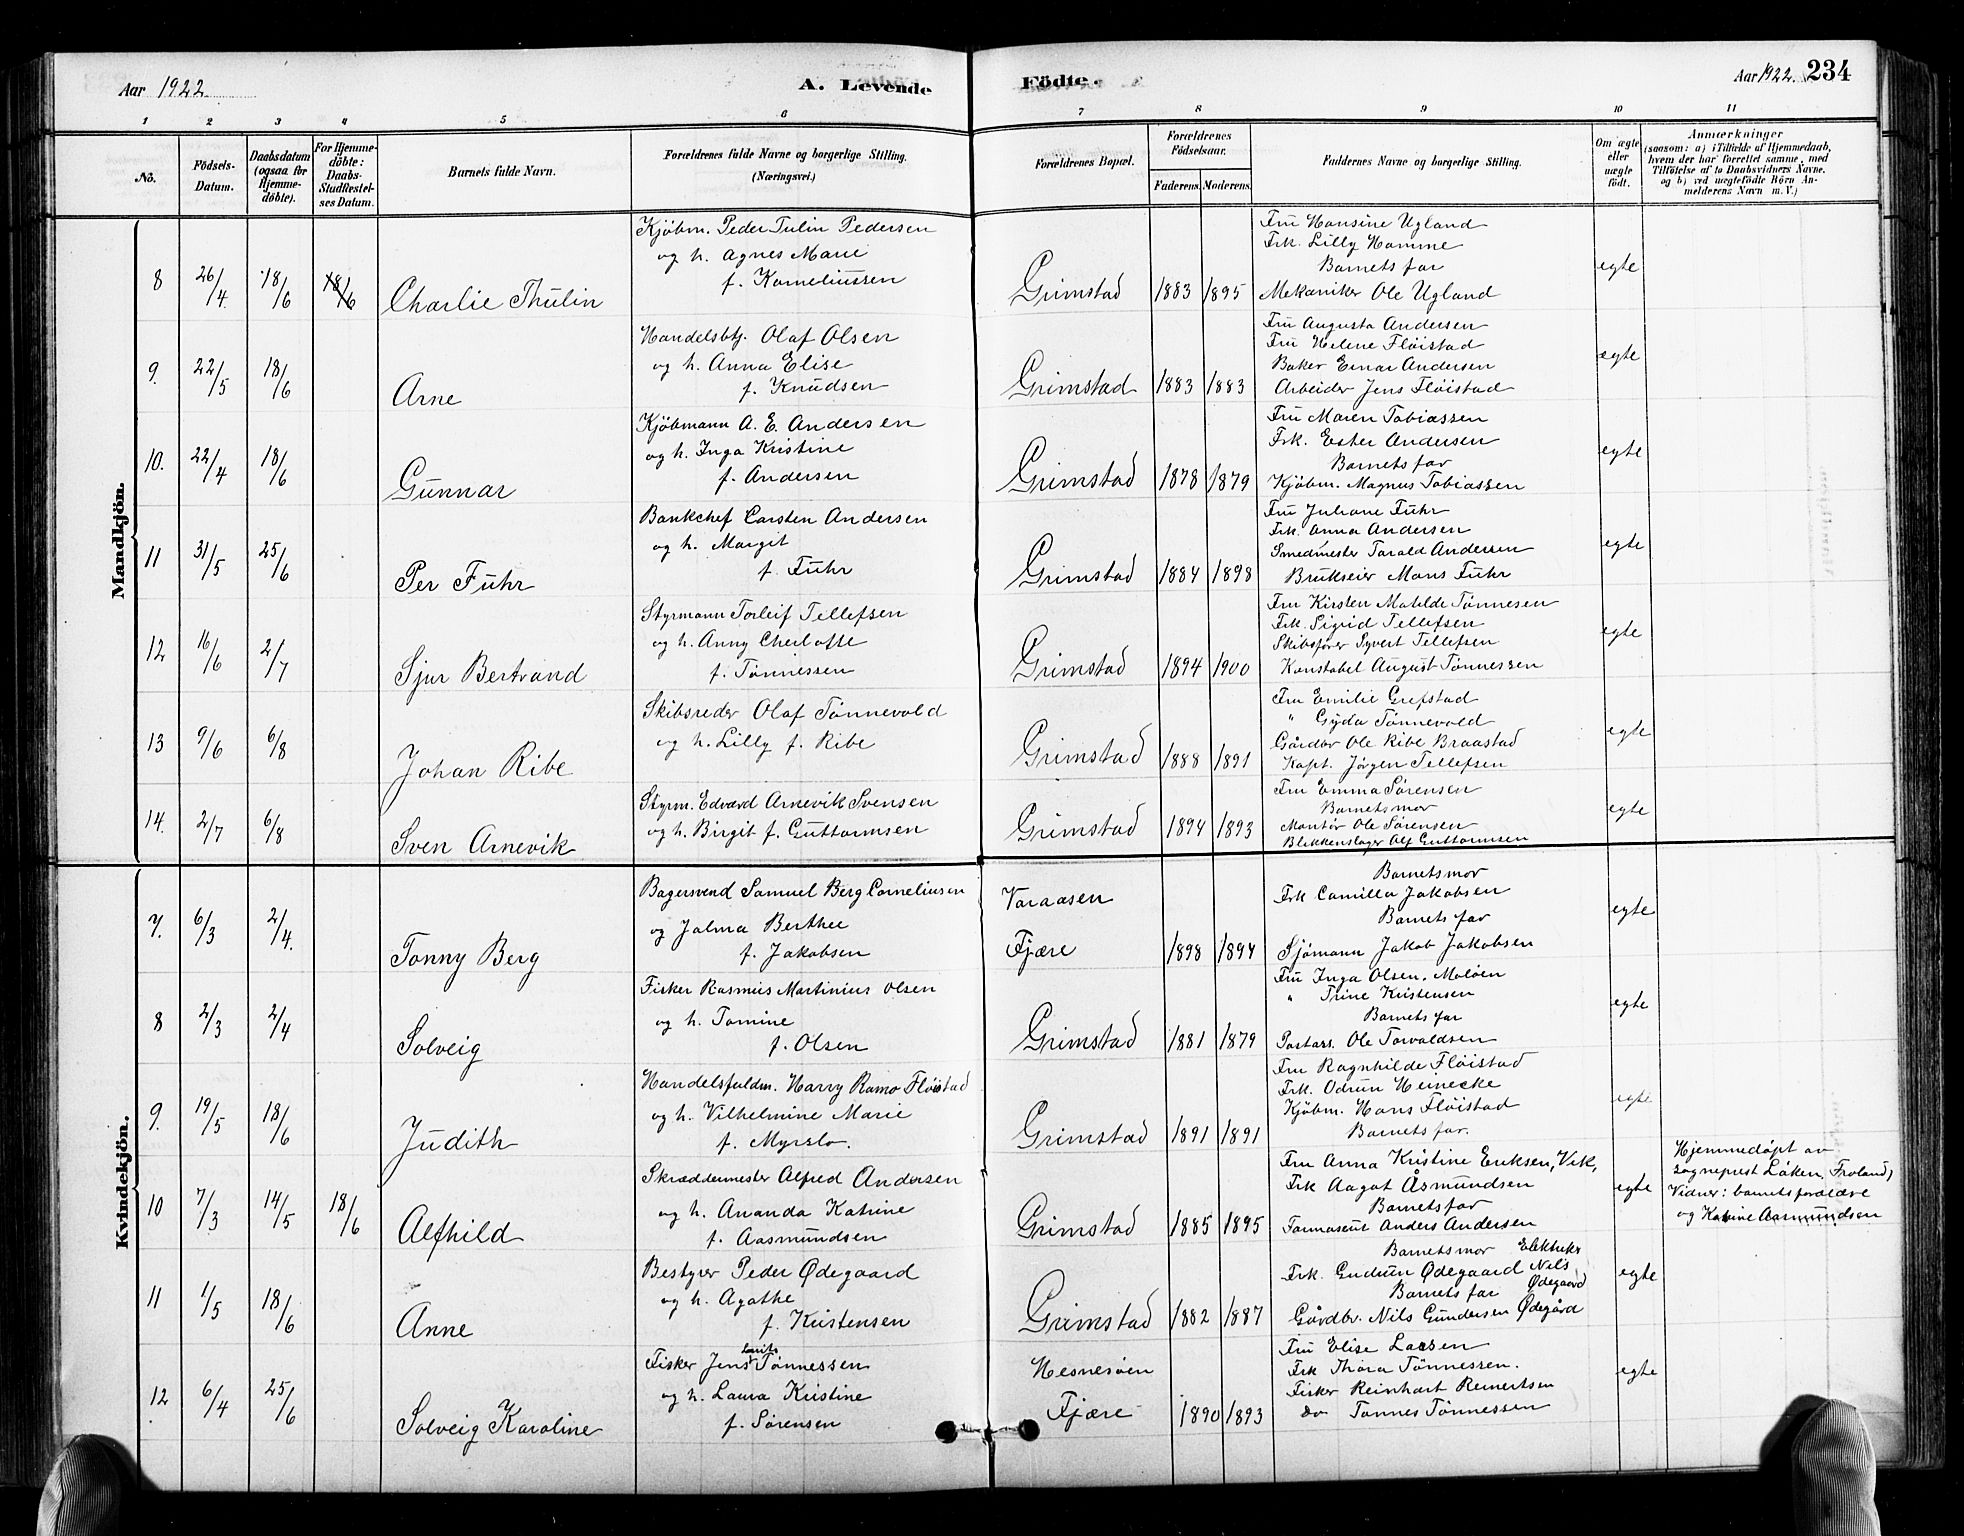 Aar 1922
A. Levende
Födte.
Aar 1922. 234
1 2 3 4 5 6 7 8 9 10 11
No.
Födsels-Datum.
Daabsdatum (ogsaa for Hjemme-döbte).
For Hjemme-döbte: Daabs-Stadfæstel-ses Datum.
Barnets fulde Navn.
Forældrenes fulde Navne og borgerlige Stilling. (Næringsvei.)
Forældrenes Bopæl.
Forældrenes Födselsaar.
Faderens. Moderens.
Faddernes Navne og borgerlige Stilling.
Om ægte eller uægte født.
Anmærkninger
(saasom: a) i Tilfælde af Hjemmedaab, hvem der har forrettet samme, med Tilføielse af to Daabsvidners Navne, og b) ved uægtefödte Börn An-melderens Navn m. V.)
Mandkjön.
8 26/4 18/6 18/6 Charlie Thulin
Kjöbm. Peder Tulin Pedersen
og h. Agnes Marie
f. Korneliussen
Grimstad 1883 1895
Fru Hansine Ugland
Frk. Lilly Hamme
Barnets far
Mekaniker Ole Ugland
egte
9. 22/5 18/6 Arne
Handelsbtj. Olaf Olsen
og h. Anna Elise
f. Knudsen
Grimstad 1883 1883
Fru Augusta Andersen
Fru Helene Fløistad
Baker Einar Andersen
Arbeider Jens Fløistad
ægte
10. 22/4 18/6 Gunnar
Kjöbmann A. E. Andersen
og h. Inga Kristine
f. Andersen
Grimstad 1878 1879
Fru Maren Tobiassen
Frk. Ester Andersen
Barnets far
Kjöbm. Magnus Tobiassen
egte
11 31/5 25/6 Per Fuhr
Bankchef Carsten Andersen
og h. Margit
f. Fuhr
Grimstad 1884 1898
Fru Juliane Fuhr
Frk. Anna Andersen
Smedmester Tarald Andersen
Brukseier Mons Fuhr
egte
12 16/6 2/7 Sjur Bertrand
Styrmann Torleif Tellefsen
og h. Anny Charlotte
f. Tønnessen
Grimstad 1894 1900
Fru Kirsten Matilde Tønnesen
Frk. Sigrid Tellefsen
Skibsfører Syvert Tellefsen
Konstabel August Tønnessen
egte
13 9/6 6/8 Johan Ribe
Skibsreder Olaf Tønnevold
og h. Lilly f. Ribe
Grimstad 1888 1891
Fru Emilie Grefstad
" Gyda Tønnevold
Gårdbr Ole Ribe Braastad
Kapt. Jørgen Tellefsen
egte
14. 2/7 6/8 Sven Arnevik
Styrm. Edvard Arnevik Svensen
og h. Birgit f. Guttormsen
Grimstad 1894 1893
Fru Emma Sørensen
Barnets mor
Montør Ole Sørensen
Blikkenslager Alf Guttormsen
egte
Kvindekjön.
7. 6/3 2/4. Tonny Berg
Bagersvend Samuel Berg Corneliusen
og Jalma Berthee
f. Jakobsen
Varaasen
Fjære 1898 1894
Barnets mor
Frk Camilla Jakobsen
Barnets far
Sjømann Jakob Jakobsen
egte
8 2/3 2/4 Solveig
Fisker Rasmus Martinius Olsen
og h. Tomine
f. Olsen
Grimstad 1881 1879
Fru Inga Olsen, Maløen
" Trine Kristensen
Barnets far
Ole Torvaldsen
egte
9. 19/5 18/6 Judith
Handelsfuldm. Harry Ramo Fløistad
og h. Vilhelmine Marie
f. Myrslo.
Grimstad 1891 1891
Fru Ragnhilde Fløistad
Frk. Odrun Heinecke
Kjöbm. Hans Fløistad
Barnets far.
egte
10 7/3 14/5 18/6 Alfhild
Skræddermester Alfred Andersen
og h. Ananda Katrine
f. Aasmundsen
Grimstad 1885 1895
Fru Anna Kristine Eriksen, Vik,
Frk Aagot Åsmundsen
Barnets far
Anders Andersen
egte
Hjemmedøpt av
sogneprest Løken, Froland,
Vidner: barnets forældre
og Katrine Aasmundsen
11 1/5 18/6 Anne
Bestyrer Peder Ødegaard
og h. Agathe
f. Kristensen
Grimstad 1882 1887
Barnets mor Elektriker
Frk. Gudrun Ødegaard Nils Ødegaard
Barnets far
Gårdbr. Nils Gundersen Ødegård
egte
12 6/4 25/6 Solveig Karoline
Fisker Jens Tønnessen
og h. Laura Kristine
f. Sørensen
Hesnesøen
Fjære 1890 1893
Fru Elise Larsen
Frk Thora Tønnessen.
Fisker Reinhart Reinertsen
do Tønnes Tønnessen
egte